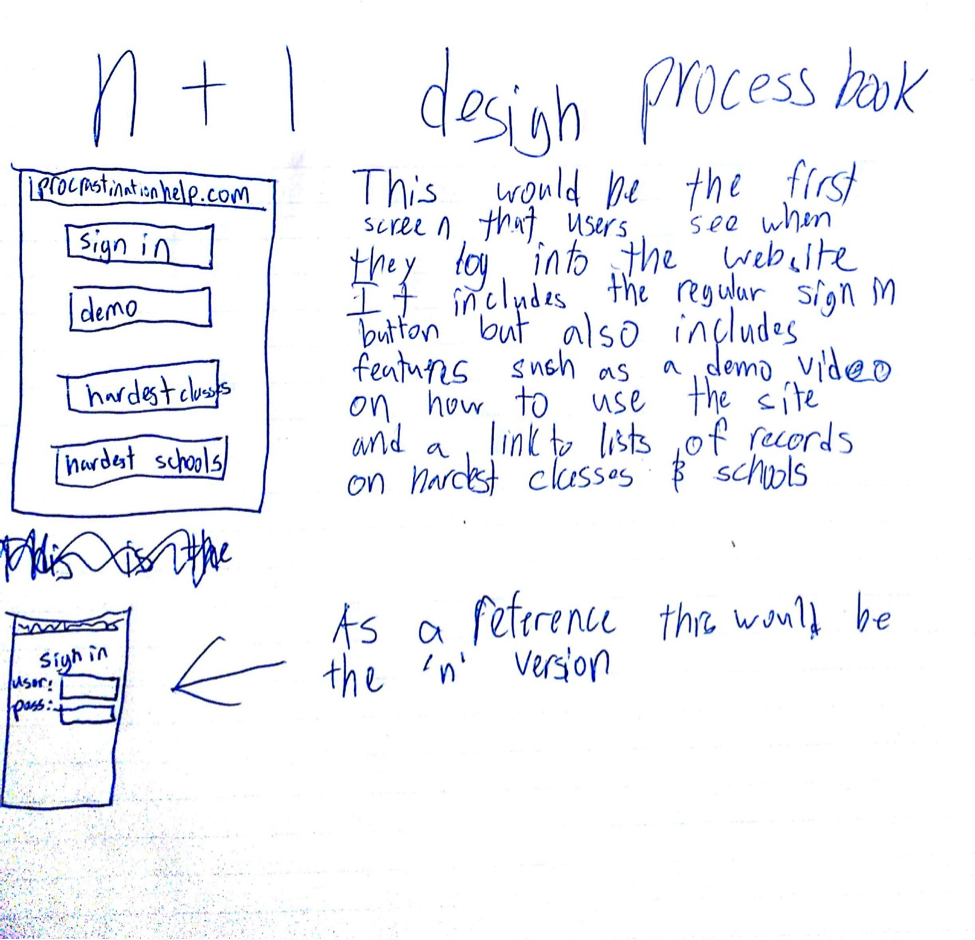 n + 1 design process book
iprocrastinationhelp.com
sign in
demo
hardest classes
hardest schools
This would be the first
screen that users see when
they log into the website
It includes the regular sign in
button but also includes
features such as a demo video
on how to use the site
and a link to lists of records
on hardest classes & schools
this is the
sign in
user:
pass:
As a reference this would be
the 'n' version